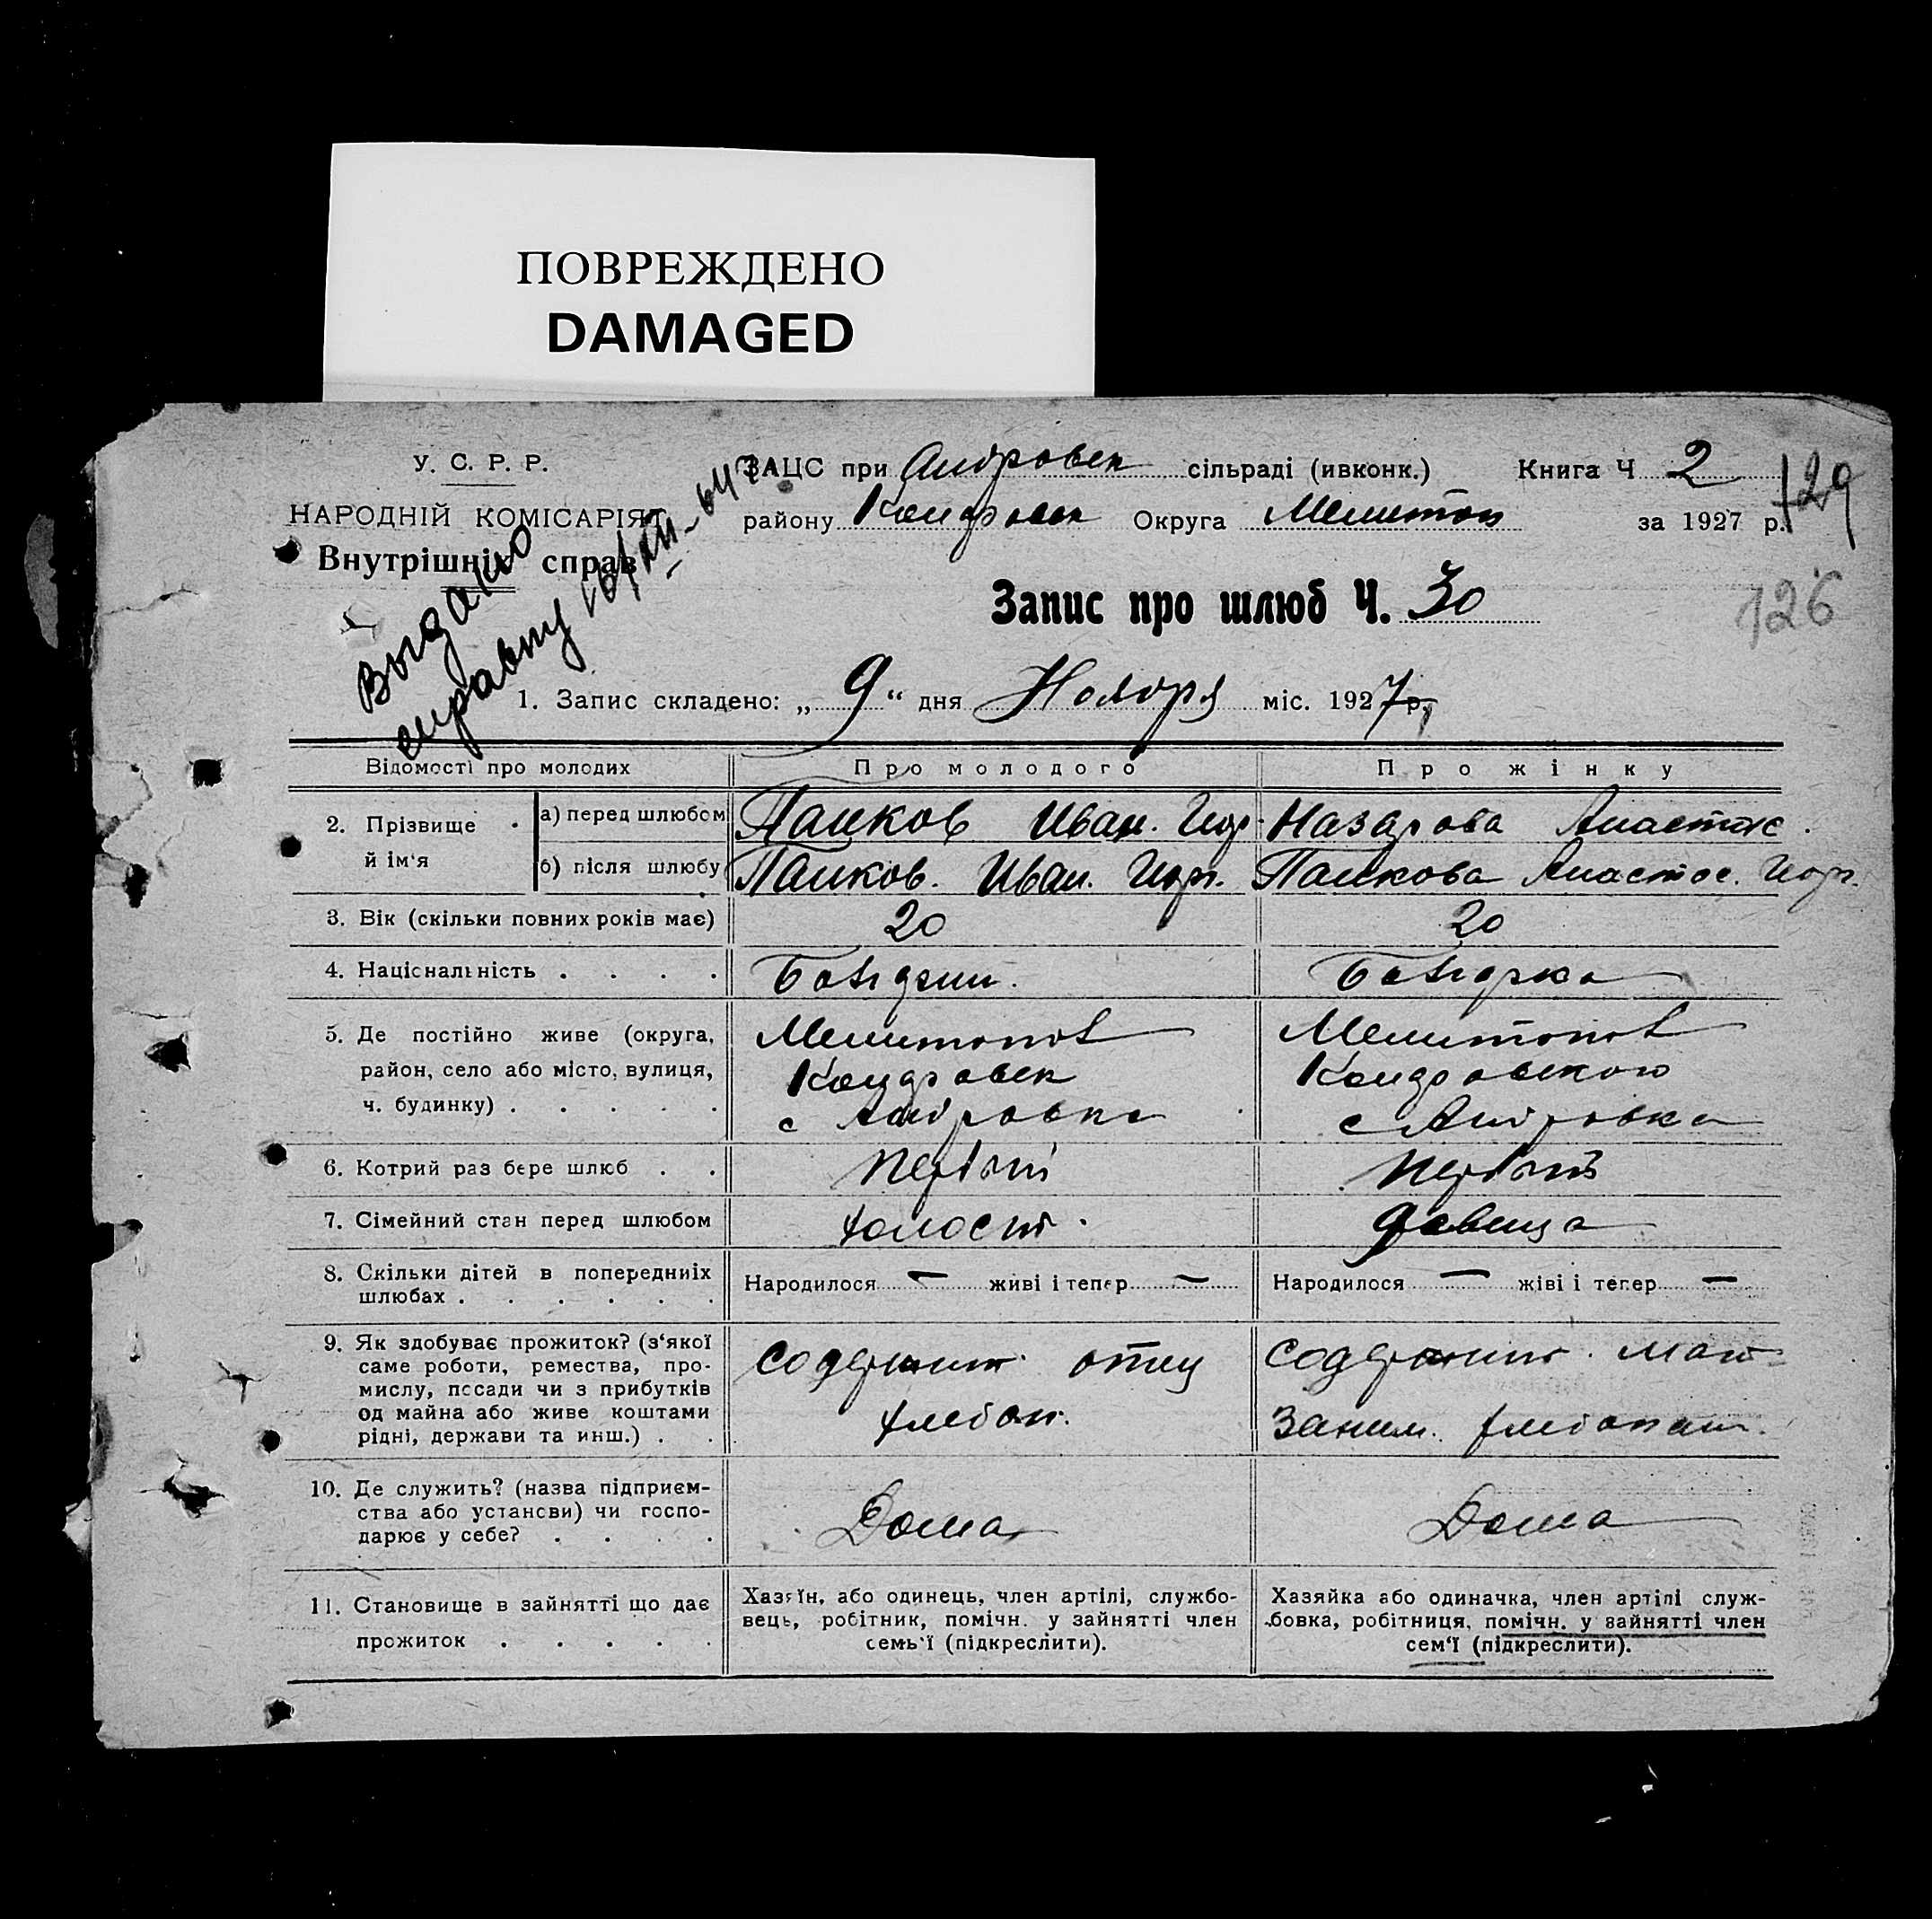 ПОВРЕЖДЕНО
DAMAGED
У. С. Р. Р.
НАРОДНІЙ КОМІСАРІЯТ
Внутрішніх справ
ЗАЦС при Андровск сільраді (ивконк.) Книга Ч 2
129
району Округа Мелитоп за 1927 р.
126
Выдано
справку
Запис про шлюб Ч. 30
1. Запис складено: „ 9 “ дня Ноября міс. 1927 р.
Відомості про молодих
Про молодого
Про жінку
2. Прізвище й ім'я
а) перед шлюбом
Панков Иван. Геор.
Назарова Анастас.
б) після шлюбу
Панков. Иван. Геор.
Панкова Анастас. Геор.
3. Вік (скільки повних років має)
20
20
4. Національність . . . .
Болгарин.
Болгарка
5. Де постійно живе (округа,
район, село або місто, вулиця,
ч. будинку) . . . . .
Мелитопол
с Андровка
Мелитопол
с Андровка
6. Котрий раз бере шлюб . .
Первый
Первый
7. Сімейний стан перед шлюбом
холост.
девица
8. Скільки дітей в попередниіх
шлюбах . . . . . .
Народилося — живі і тепер —
Народилося — жіві і тепер —
9. Як здобуває прожиток? (з'якої
саме роботи, ремества, про-
мислу, посади чи з прибутків
од майна або живе коштами
рідні, держави та инш.) . .
Содержит отец
хлебоп.
Содержит. мать
Заним. хлебопаш.
10. Де служить? (назва підприєм-
ства або установи) чи госпо-
дарює у себе? . . . .
Дома
Дома
11. Становище в зайнятті що дає
прожиток . . . . .
Хазяїн, або одинець, член артілі, службо-
вець, робітник, помічн. у зайнятті член
семь'ї (підкреслити).
Хазяйка або одиначка, член артілі служ-
бовка, робітниця, помічн. у зайнятті член
сем'ї (підкреслити).